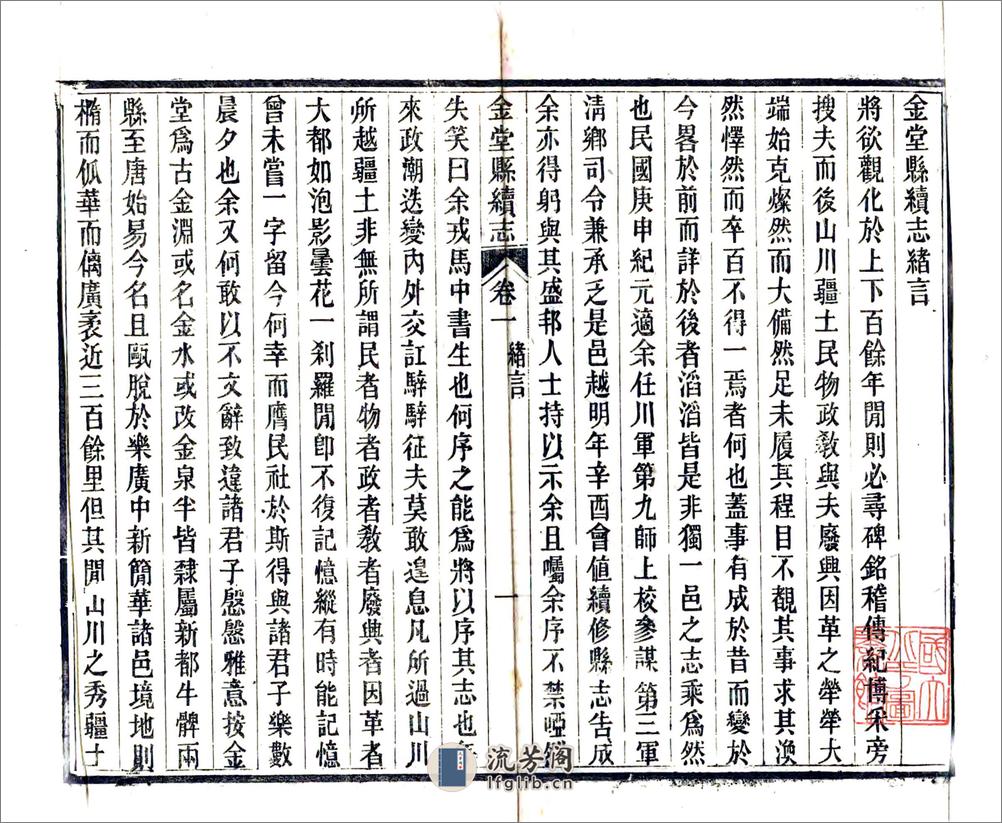 金堂縣續志緒言
將欲觀化於上下百餘年閒則必尋碑銘稽傳紀博釆旁
搜夫而後山川疆土民物政敎與夫廢興因革之犖犖大
端始克燦然而大備然足未履其程目不覩其事求其渙
然懌然而卒百不得一焉者何也蓋事有成於昔而變於
今畧於前而詳於後者滔滔皆是非獨一邑之志乘爲然
也民國庚申紀元適余任川軍第九師上校參謀第三軍
淸鄉司令兼承乏是邑越明年辛酉會值續修縣志吿成
余亦得躬與其盛邦人士持以示余且囑余序不禁啞
金堂縣續志 卷一 緒言 一
失笑曰余戎馬中書生也何序之能爲將以序其志也
來政潮迭變內外交訌騂騂征夫莫敢遑息凡所過山川
所越疆土非無所謂民者物者政者敎者廢興者因革者
大都如泡影曇花一刹羅閒卽不復記憶縱有時能記憶
曾未嘗一字留今何幸而膺民社於斯得與諸君子樂數
晨夕也余又何敢以不文辭致違諸君子慇慇雅意按金
堂爲古金淵或名金水或改金泉半皆隸屬新都牛鞞兩
縣至唐始易今名且甌脫於樂廣中新簡華諸邑境地則
橢而呱華而偽廣袤近三百餘里但其閒山川之秀疆土
流芳阁
lfglib.cn